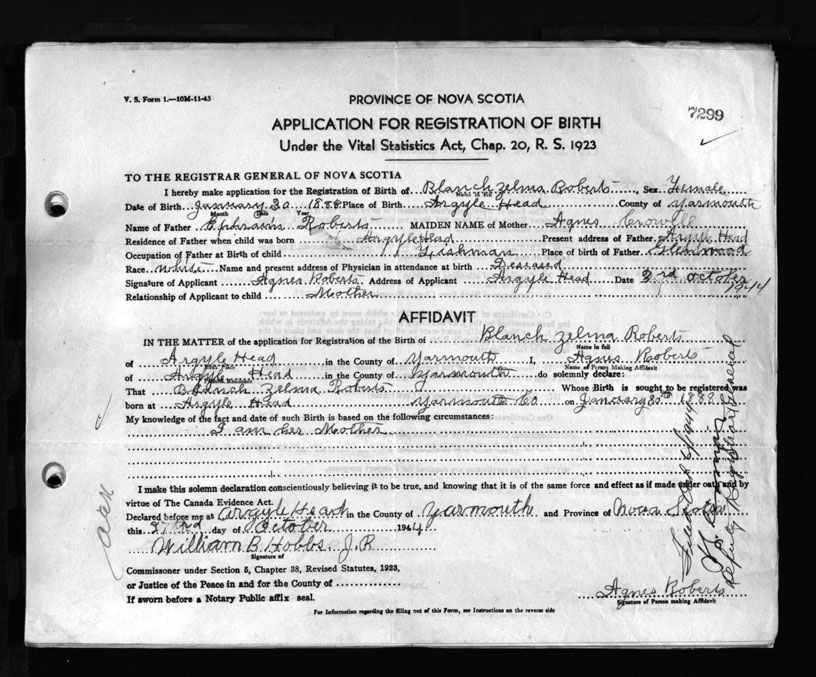 V. S. Form 1.—10M-11-43
PROVINCE OF NOVA SCOTIA
7299
APPLICATION FOR REGISTRATION OF BIRTH
Under the Vital Statistics Act, Chap. 20, R. S. 1923
TO THE REGISTRAR GENERAL OF NOVA SCOTIA
I hereby make application for the Registration of Birth of Blanch Zelma Roberts, Sex Female
Name in full
Date of Birth January 30 1888 Place of Birth Argyle Head County of Yarmouth
Month Date Year
Name of Father Ephraim Roberts MAIDEN NAME of Mother Agnes Crowell
Residence of Father when child was born Argyle Head Present address of Father Argyle Head
Occupation of Father at Birth of child Fishman Place of birth of Father Glenwood
Race White Name and present address of Physician in attendance at birth Deceased
Signature of Applicant Agnes Roberts Address of Applicant Argyle Head Date 3rd October
Relationship of Applicant to child Mother
AFFIDAVIT
IN THE MATTER of the application for Registration of the Birth of Blanch Zelma Roberts
Name in full
of Argyle Head in the County of Yarmouth I, Agnes Roberts
Name of Person Making Affidavit
of Argyle Head in the County of Yarmouth do solemnly declare:
That Blanch Zelma Roberts Whose Birth is sought to be registered was
born at Argyle Head Yarmouth Co on January 30th 1888
My knowledge of the fact and date of such Birth is based on the following circumstances:
I am her Mother
I make this solemn declaration conscientiously believing it to be true, and knowing that it is of the same force and effect as if made under oath and by
virtue of The Canada Evidence Act.
Declared before me at Argyle Head in the County of Yarmouth and Province of Nova Scotia
this day of October 1944
William B Hobbs J.P
Signature of
Commissoner under Section 5, Chapter 38, Revised Statutes, 1923,
or Justice of the Peace in and for the County of
If sworn before a Notary Public affix seal.
Agnes Roberts
Signature of Person making Affidavit
For Information regarding the filling out of this Form, see Instructions on the reverse side
Deputy Registrar General